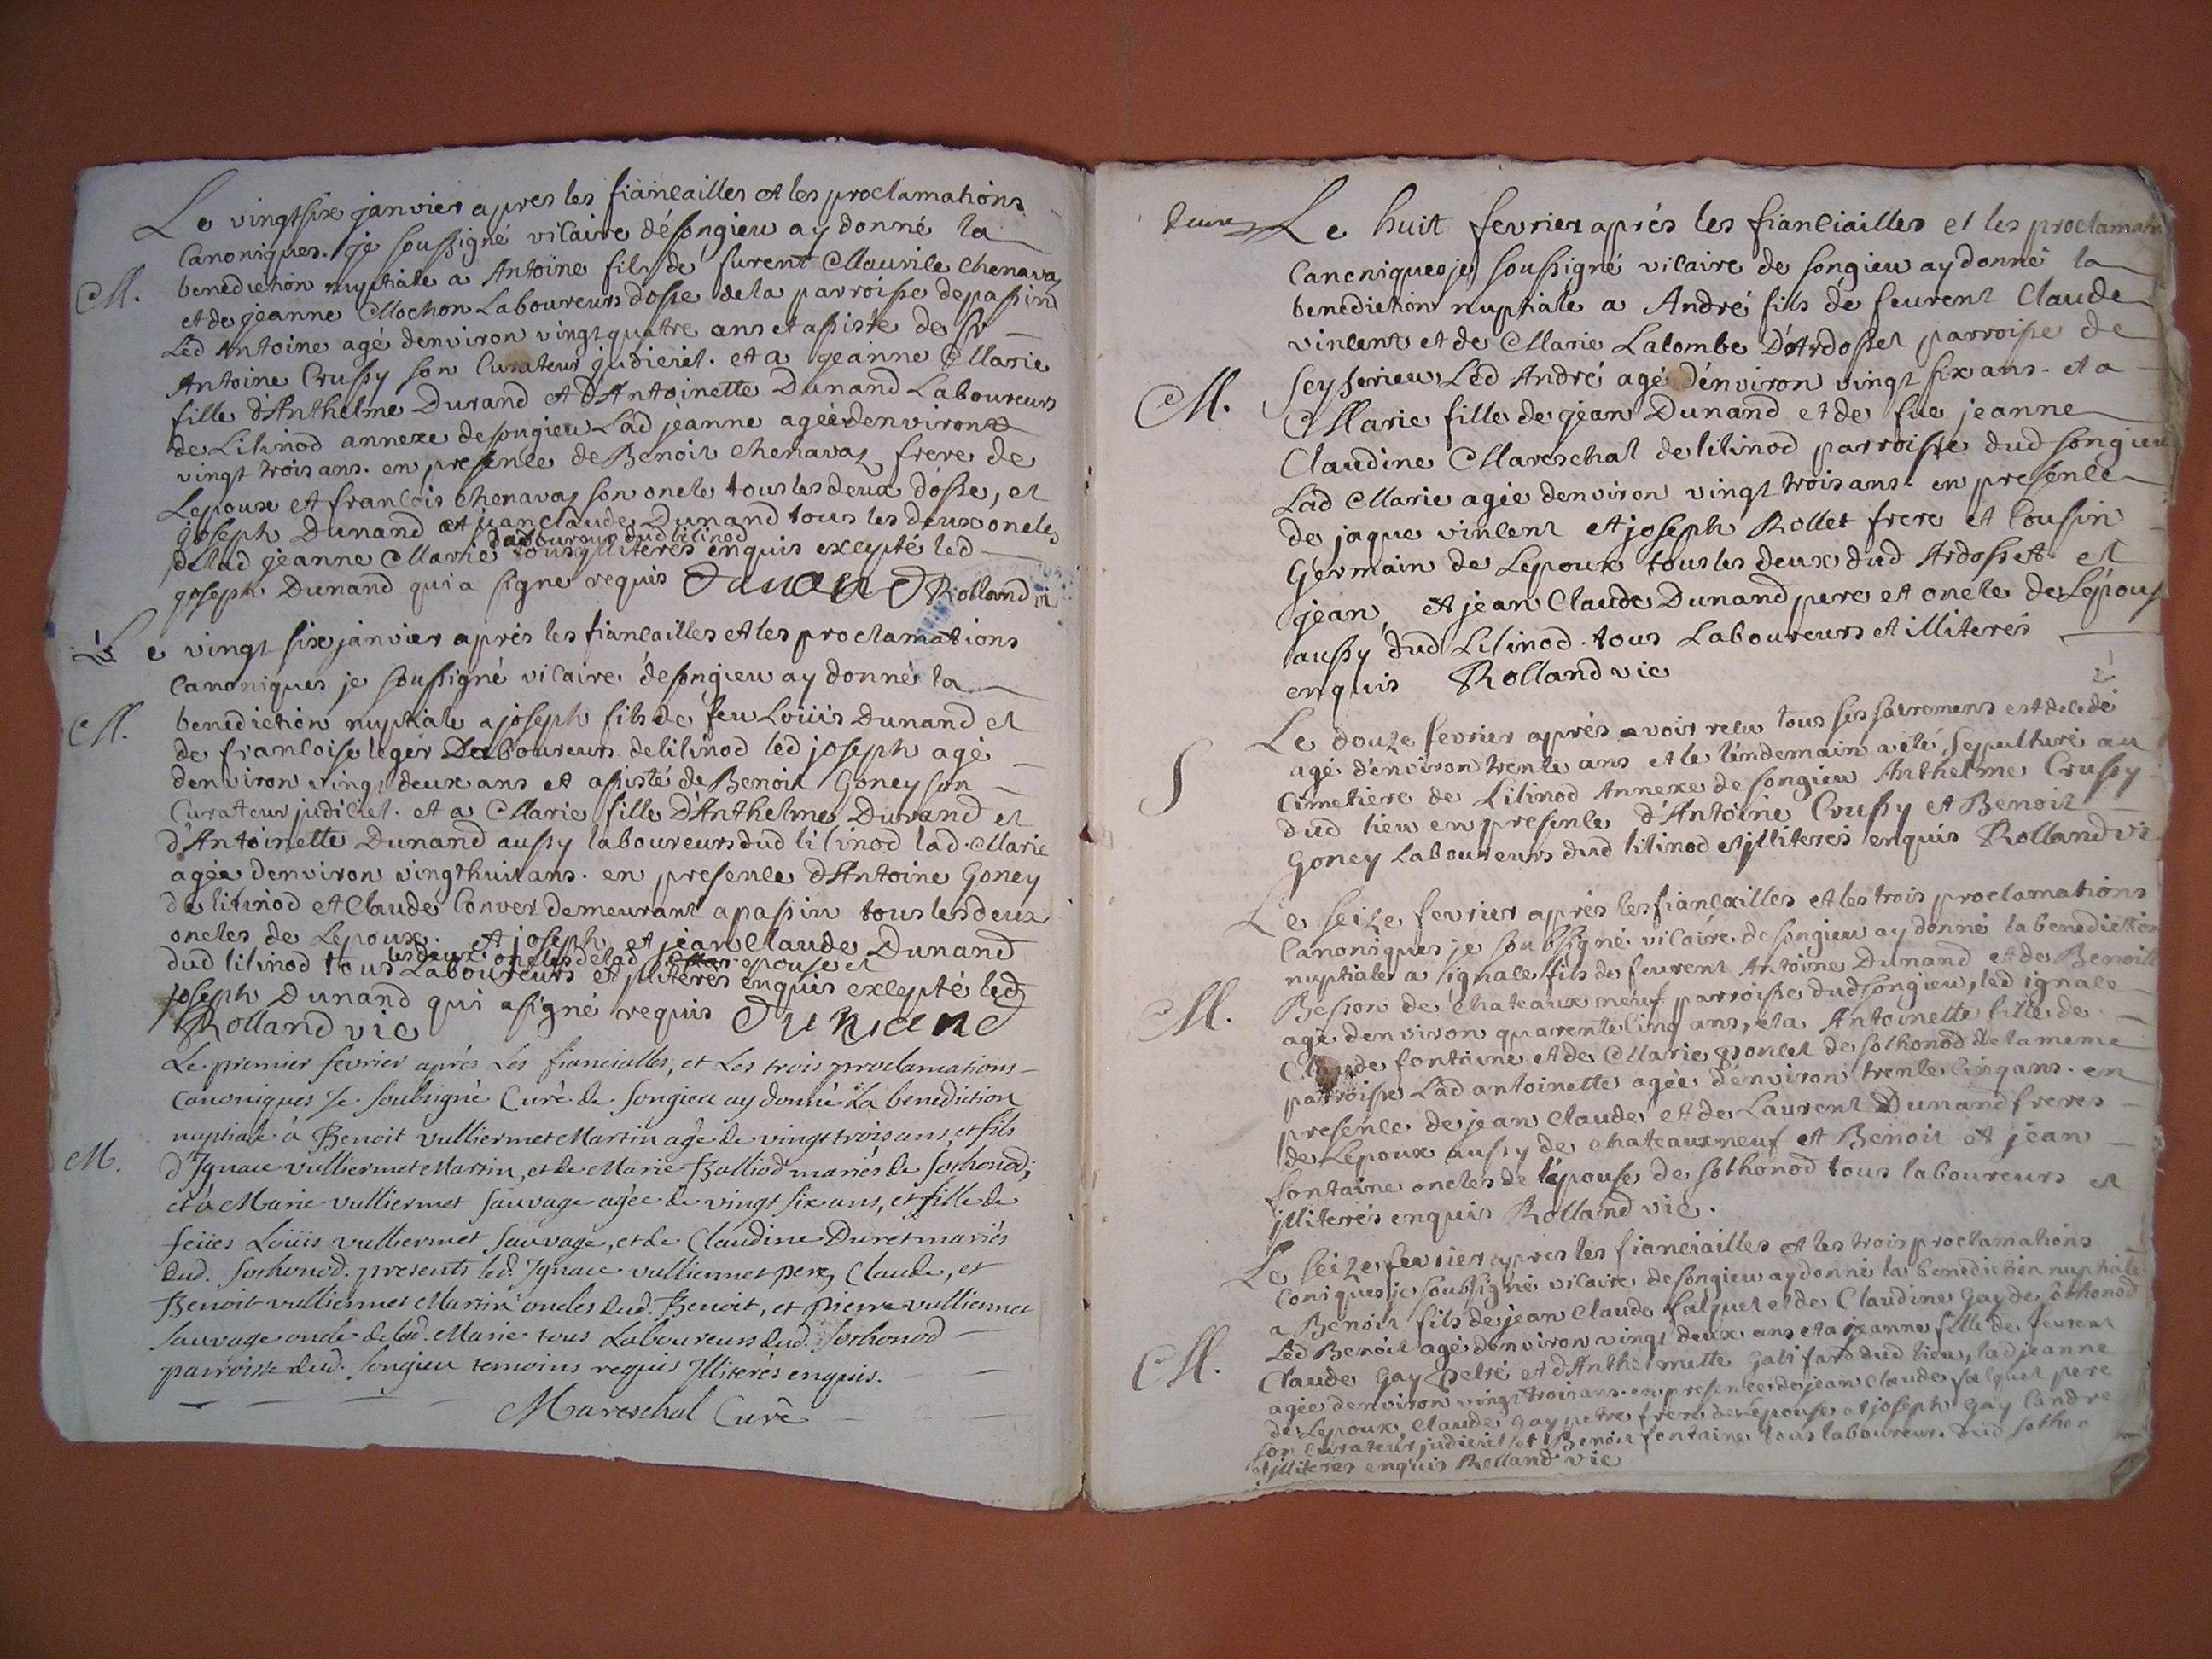 Le vingtsix janvier apres les fiancailles et les proclamations
Canoniques. je soussigné vicaire désongieu ay donné la
M. benediction nuptiale a Antoine fils de furent Maurile Chenavaz
et de jeanne Mochon Laboureurs dosse de la parroisse depassind
Led Antoine agé denviron vingt quatre ans et assisté de Sr
Antoine Crussy son Curateur judiciel. et a jeanne Marie
fille d'Anthelme Durand et d'Antoinette Dunand Laboureurs
de Lilinod annexe de songieu Lad jeanne ageé denviron
vingt trois ans. en presence de Benoit Chenavaz frere de
Lepoux et francois Chenavaz son oncle tous les deux dosse, et
joseph Dunand et jean claude Dunand tous les deux oncles
Laboureurs dud lilinod
delad jeanne Marie tous jlliterés enquis excepté led
joseph Dunand qui a signé requis Dunand Rolland vi
Le vingt six janvier aprés les fiancailles et les proclamations
canoniques je soussigné vicaire désongieu ay donné la
M. benediction nuptiale a joseph fils de feu Loüis Dunand et
de francoise leger Laboureurs de lilinod led joseph agé
denviron vingt deux ans et assisté de Benoit Goney son
Curateur judiciel. et a Marie fille d'Anthelme Durand et
d'Antoinette Dunand aussy laboureurs dud lilinod lad. Marie
agée denviron vingt huit ans. en presence d'Antoine Goney
de lilinod et Claude Convers demeurant a passin tous les deux
oncles de Lepoux. et joseph et jean claude Dunand
les deux oncles de lad epouse et
dud lilinod tous Laboureurs et jlliterés enquis excepté led
joseph Dunand qui a signé requis Dunand
Rolland vic
Le premier fevrier aprés Les fiancialles, et Les trois proclamations
canoniques Je soubsigné Curé de Songieu ay donné La benediction
nuptiale à Benoit vulliermet Martin agé de vingt trois ans, et fils
M. d'Ignace vulliermet Martin, et de Marie Balliod mariés de Sothonod;
et à Marie vulliermet Sauvage agée de vingt six ans, et fille de
feües Loüis vulliermet Sauvage, et de Claudine Duret mariés
dud. Sothonod. presents led. Ignace vulliermet pere, Claude, et
Benoit vulliermet Martin oncles dud. Benoit, et Pierre vulliermet
Sauvage oncle de lad. Marie tous Laboureurs dud. Sothonod
parroisse dud. Songieu temoins requis Illiterés enquis.
Mareschal Curé
Le huit fevrier aprés les fianciailles et les proclamatn
Canoniques je soussigné vicaire de songieu ay donné la
benediction nuptiale a André fils de feurent Claude
vincent et de Marie Lalombe D'Ardosset parroisse de
Seysserieu, Led André agé dénviron vingt six ans. et a
M. Marie fille de jean Dunand et de fue jeanne
Claudine Mareschal de lilinod parroisse dud songieu
Lad Marie agée denviron vingt trois ans. en presence
de jaque vincent et joseph Rollet frere et Cousin
Germain de Lepoux tous les deux dud Ardosset. et
jean, et jean Claude Dunand pere et oncle de Lépous
aussy dud Lilinod. tous Laboureurs et illiterés
enquis Rolland vic
Le douze fevrier aprés avoir recu tous ses sacremens est decedé
agé d'environ trente ans et le lendemain a eté sepulturé au
S Cimetiere de Lilinod Annexe de songieu Anthelme Crussy
dud lieu en presence d'Antoine Crussy et Benoit
Goney Laboureurs dud lilinod et jlliterés enquis Rolland vi
Le seize fevrier aprés les fiancailles et les trois proclamations
Canoniques je soubsigné vicaire de songieu ay donné la benediction
nuptiale a ignace fils de feurent Antoine Dunand et de Benoite
M. Besson de Chateauxneuf parroisse dud songieu, led ignace
agé denviron quarente cinq ans, et a Antoinette fille de
Claude fontaine et de Marie poncet de sothonod de la meme
parroisse Lad antoinette agée dénviron trente cinq ans. en
presence de jean Claude et de Laurent Dunand freres
de Lepoux aussy de chateauxneuf et Benoit et jean
fontaine oncles de l'épouse de sothonod tous laboureurs et
jlliterés enquis Rolland vic.
Le seize fevrier apres les fianciailles et les trois proclamations
Coniques je soubsigné vicaire de songieu ay donné la benediction nuptiale
a Benoit fils de jean Claude falquet et de Claudine Gay de sothonod
M. Led Benoit agé denviron vingt deux ans et a jeanne fille de feurent
Claude Gay Petré et d'Anthelmette Galifard dud lieu, lad jeanne
agée denviron vingt trois ans. en presence de jean claude falquet pere
de Lepoux, Claude Gay petre frere de Lepouse et joseph Gay Candre
son Curateur judiciel et Benoit fontaine tous laboureurs dud sothon
et jlliterés enquis Rolland vic